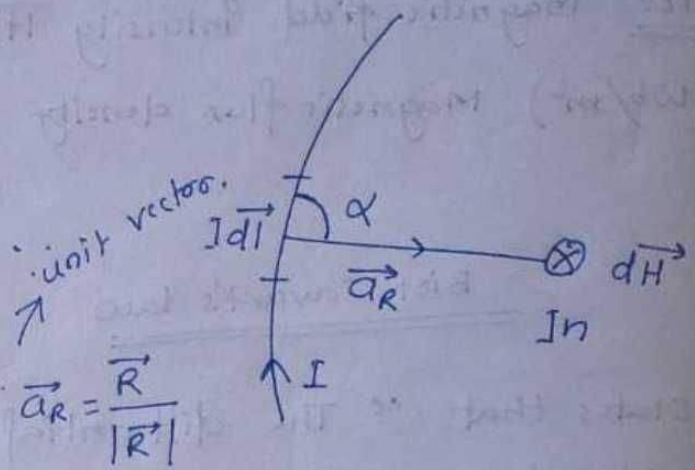 unit vector.
I d\vec{l}
α
\vec{a}_R
d\vec{H}
In
I
\vec{a}_R = \frac{\vec{R}}{|\vec{R}|}